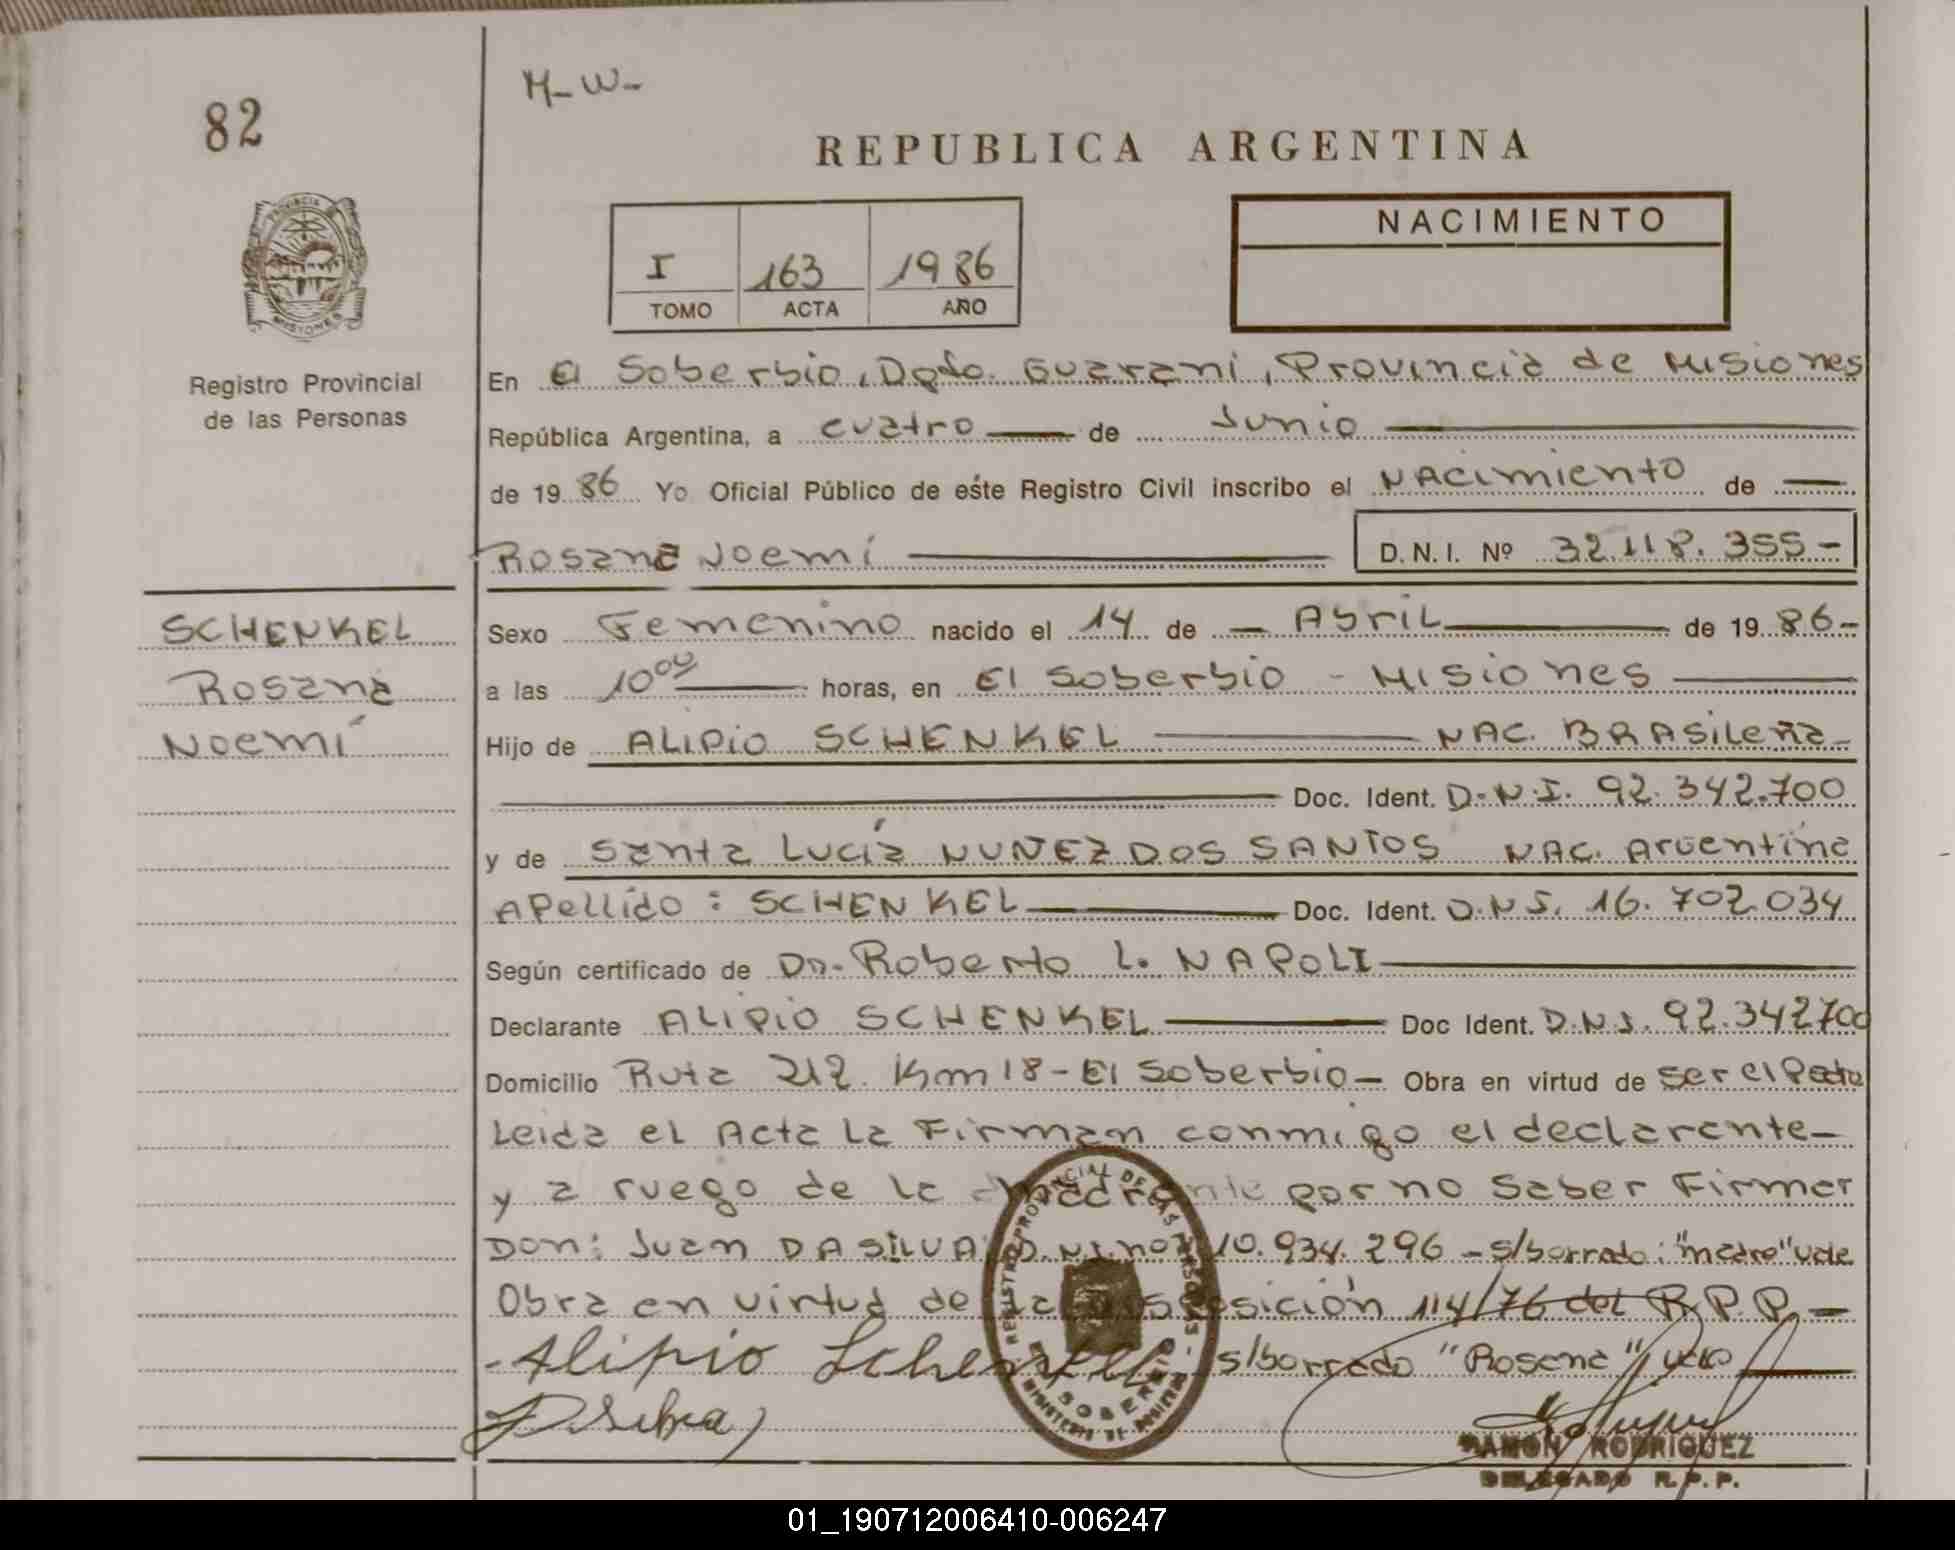 82
M-W-
REPUBLICA ARGENTINA
PROVINCIA
MISIONES
Registro Provincial
de las Personas
I 163 1986
TOMO ACTA AÑO
NACIMIENTO
En El Soberbio, Dpto. Guaraní, Provincia de Misiones
República Argentina, a cuatro de Junio
de 1986 Yo Oficial Público de este Registro Civil inscribo el NAcimiento de
Rosana Noemí D.N.I. Nº 32.118.355-
SCHENKEL
Rosana
Noemí
Sexo Femenino nacido el 14 de - Abril de 1986-
a las 10 00 horas, en El Soberbio - Misiones
Hijo de ALIPIO SCHENKEL NAC. BRASileña-
Doc. Ident. D.N.I. 92.342.700
y de Santa Lucía NUNEZ DOS SANTOS NAC. Argentina
Apellido: SCHENKEL Doc. Ident. D.N.I. 16.702.034
Según certificado de Dr. Roberto L. NAPOLI
Declarante ALIPIO SCHENKEL Doc Ident. D.N.I. 92.342700
Domicilio Ruta 212 Km 18 - El Soberbio - Obra en virtud de ser el Padre
Leida el Acta La Firman conmigo el declarante-
y a ruego de la madre por no saber Firmar
Don: Juan DA SILVA D.N.I. no 10.934.296 - s/borrado: "madre" vale
Obra en virtud de la Disposición 114/76 del R.P.P. -
Alipio Schenkel s/borrado "Rosana", vale
DSilva
REGISTRO PROVINCIAL DE LAS PERSONAS -
EL SOBERBIO
MINISTERIO DE GOBIERNO
RAMON RODRIGUEZ
DELEGADO R.P.P.
01_190712006410-006247